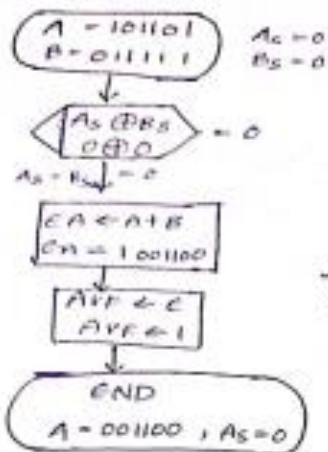 A = 101101
B = 011111
As = 0
Bs = 0
As ⊕ Bs
0 ⊕ 0
= 0
As = Bs = 0
EA ← A + B
EA = 1 001100
AVF ← E
AVF ← 1
END
A = 001100 , As = 0